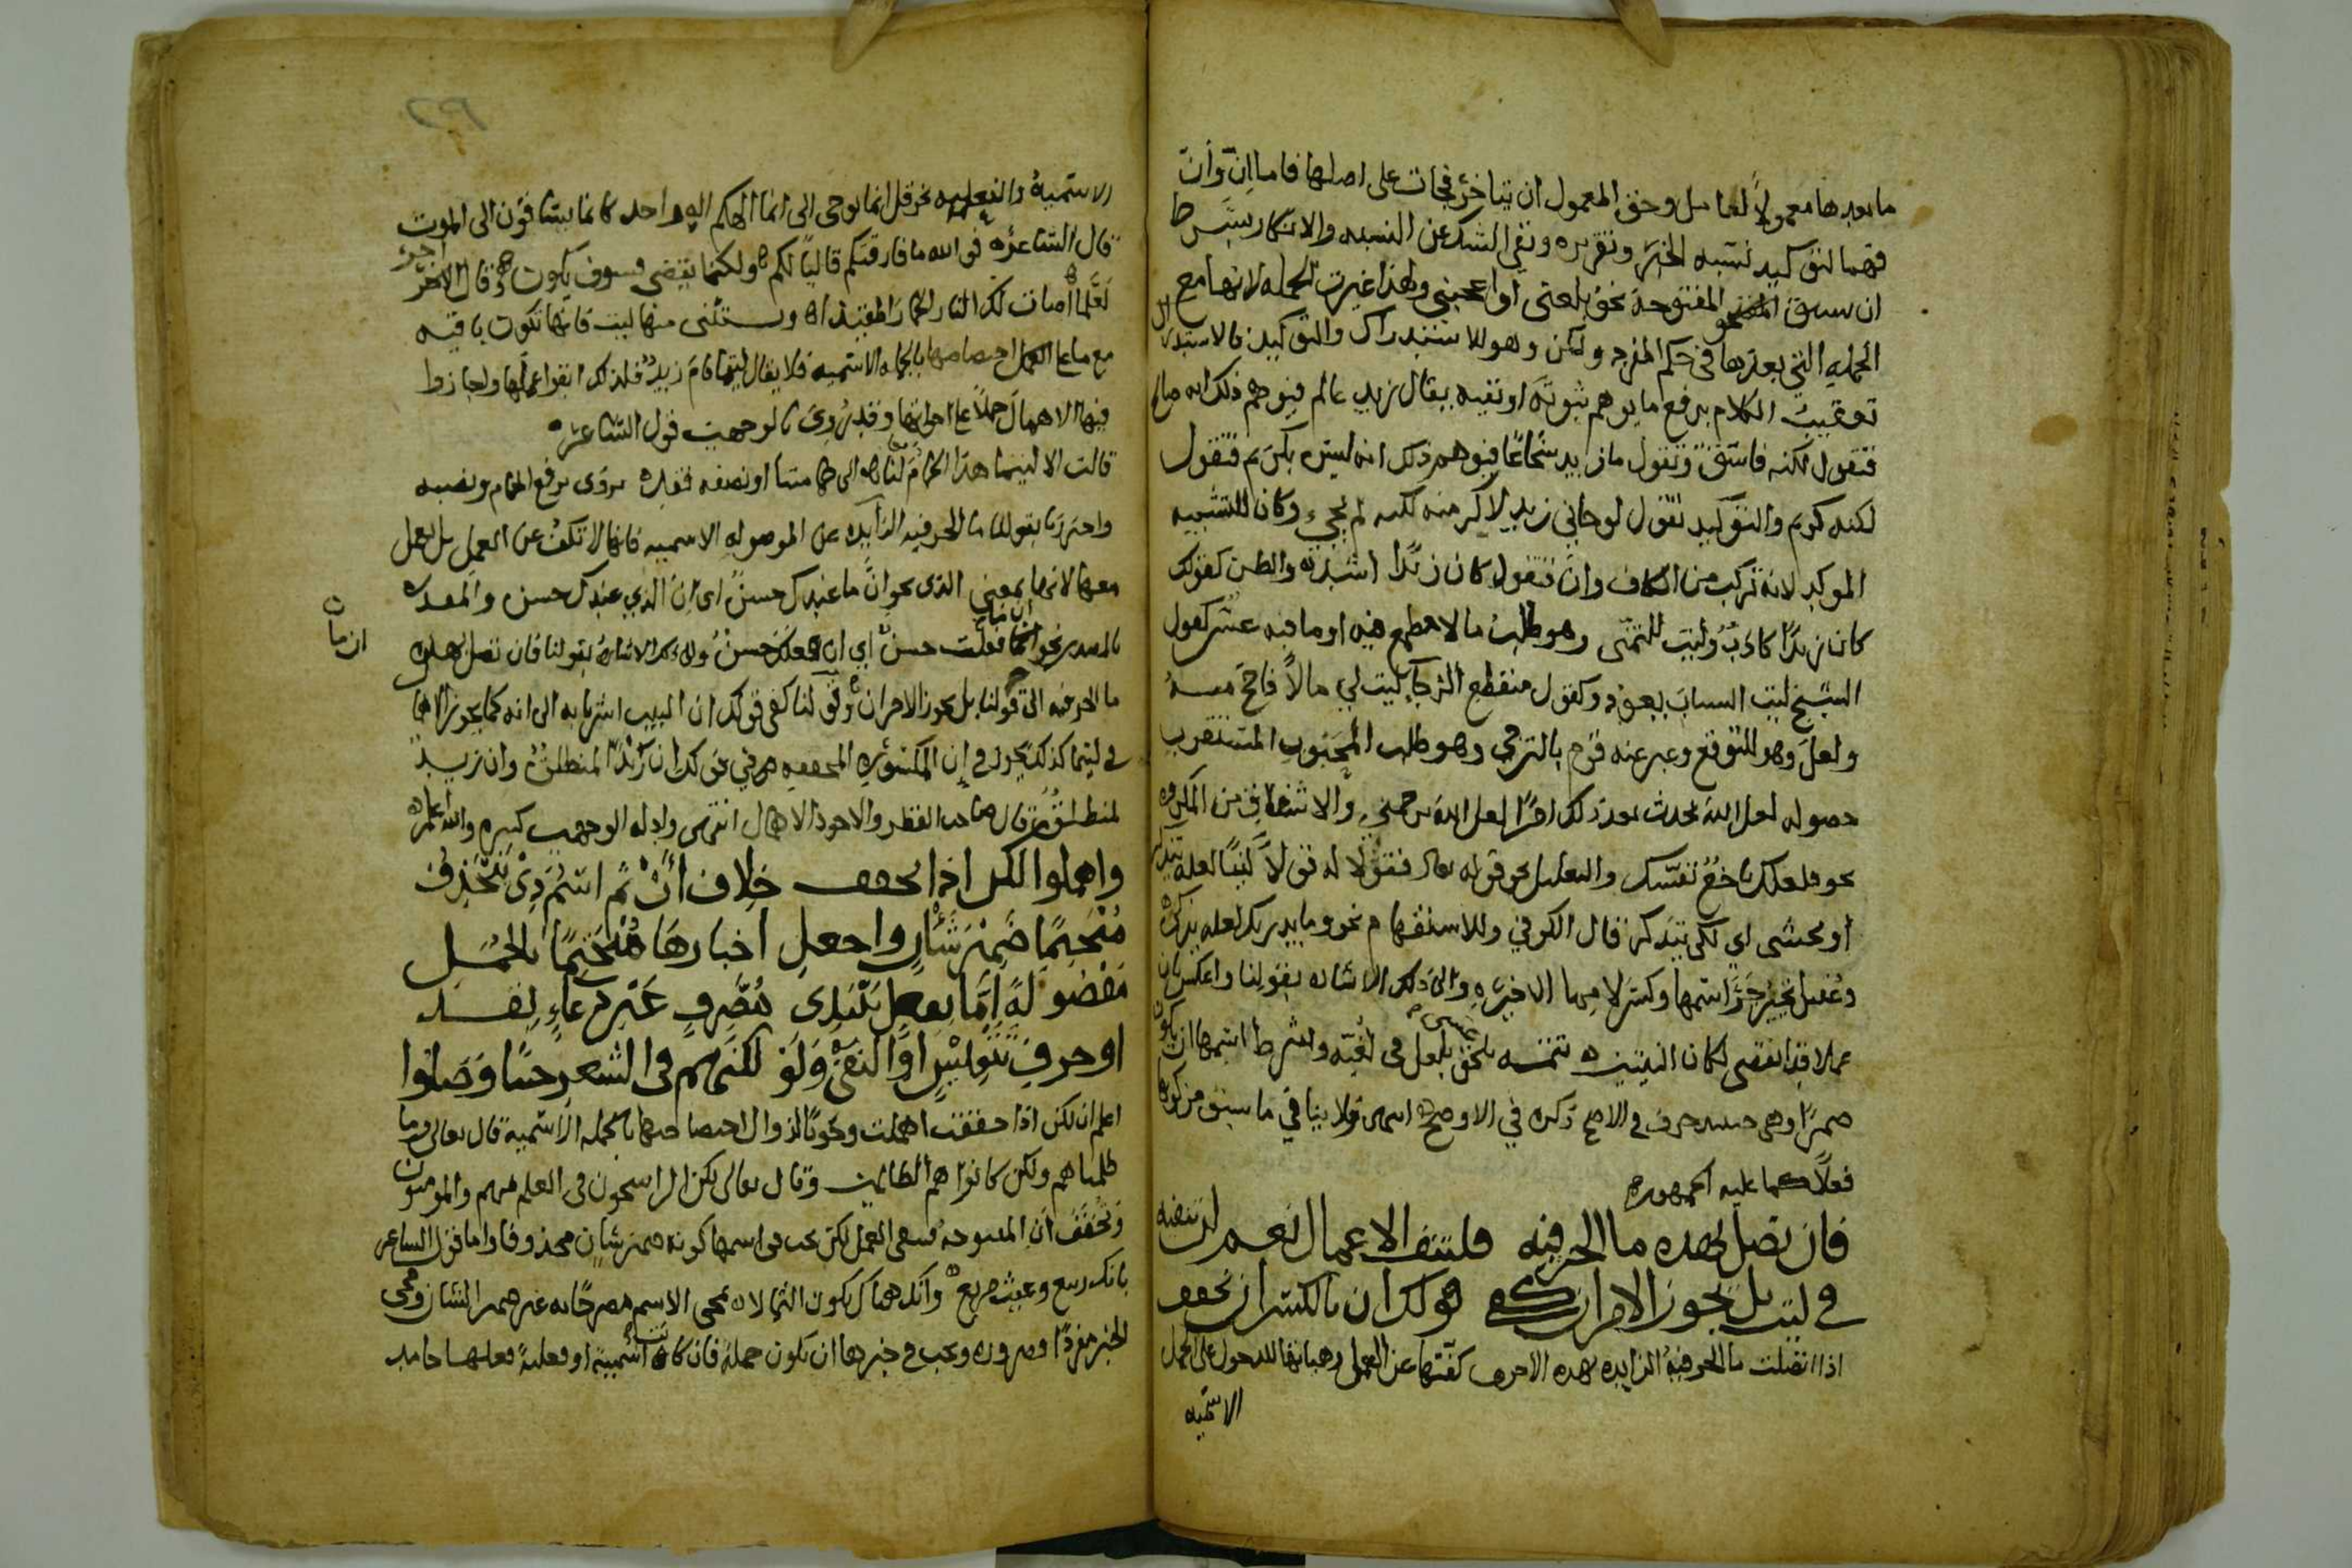 ما بعدها معمولاً لعامل وحق المعمول ان يتاخر فجات على اصلها فاما اِنّ وأنّ
فهما لتوكيد نسبه الخبر وتقريره ونفي الشك عن النسبه والانكار بشرط
ان سبق المفتوحة نحو بلغني او اعجبني ولهذا غيرت الجمله لانها مع
الجمله التي بعدها في حكم المفرد ولكن وهو للاستدراك والتوكيد فالاستدراك
تعقيب الكلام برفع ما يوهم ثبوته او نفيه يقال زيد عالم فيوهم ذلك انه صالح
فتقول لكنه فاسق وتقول ما زيد شجاعًا فيوهم ذلك انه ليس بكريم فتقول
لكنه كريم والتوكيد تقول لو جاني زيد لاكرمته لكنه لم يجيء وكان للتشبيه
الموكد لانه تركب من الكاف وان فتقول كان زيدًا اسد والظن كقولك
كان زيدًا كاذب وليت للتمنى وهو طلب ما لا طمع فيه او ما فيه عسر كقول
الشيخ ليت الشباب يعود وكقول منقطع الرجا ليت لي مالاً فاحج منه
ولعل وهو للتوقع وعبر عنه قوم بالترجي وهو طلب المحبوب المستقرب
حصوله لعل الله يحدث بعد ذلك امرًا لعل الله يرحمني والاشفاق من المكروه
نحو فلعلك باخع نفسك والتعليل نحو قوله تعالى فقولا له قولاً لينًا لعله يتذكر
او يخشى اي لكي يتذكر قال الكوفي وللاستفهام نحو وما يدريك لعله يزكى
وعقيل تجيز جر اسمها وكسر لامها الاخيره والى ذلك الاشاره بقولنا واعكس بان
عملا قد انقضى لكان البيتين تتمه يلحق بلعل عسى في لغيه وشرط اسمها ان يكون
ضميرًا وهي حينئذ حرف في الاصح ذكره في الاوضح ولا ينافي ما سبق من كونها
فعلاً كما عليه الجمهور
فان تصل بهذه ما الحرفيه فلتنف الاعمال نعم لن تنفيه
في ليت بل يجوز الامران كفى قولك ان بالكسر ان تخفف
اذا اتصلت ما الحرفية الزايده بهذه الاحرف كفتها عن العمل وهيأتها للدخول على الجمل
الاسميه
الاسمية والفعليه نحو قل انما يوحى الى انما الهكم اله واحد كانما يساقون الى الموت
قال الشاعر فوالله ما فارقتكم قاليًا لكم ولكنما يقضى فسوف يكون وقال الاخر
لعلما اضات لك النار الحمار المقيدا ويستثنى منها ليت فانها تكون باقيه
مع ما على اختصاصها بالجمله الاسميه فلا يقال ليتما قام زيد فلذلك ابقوا عملها واجازوا
فيها الاهمال حملاً على اخواتها وقد روى بالوجهين قول الشاعر
قالت الا ليتما هذا الحمام لنا الى حمامتنا او نصفه فقد يروى برفع الحمام ونصبه
واحترزنا بقولنا ما الحرفيه الزائده عن الموصوله الاسميه فانها لا تكف عن العمل بل تعمل
معها لانها بمعنى الذي نحو ان ما عندك حسن اى ان الذي عندك حسن والمقدره
بالمصدر نحو ان ما فعلت حسن اي ان فعلك حسن والى ذلك الاشارة بقولنا فان تصل بهذه
ما الحرفيه الى قولنا بل يجوز الامران وقولنا كفى قولك ان البيت اشرنا به الى انه كما يجوز الامران
في ليتما كذلك يجوز في إن المكسوره المخففه في قولك ان زيدًا لمنطلق وان زيد
لمنطلق قال صاحب القطر والاجود الاهمال انتهى وادله الوجهين كثيره والله اعلم
واهملوا لكن اذا تخفف خلاف أنْ ثم اسم ذى تنحذف
مُنْحتمًا ضمير شان واجعل اخبارها مُنْحَتِمًا بالجمل
مفصولةً إمّا بفعل تبتدى مُصَرَّفٍ غير دعاءٍ بقد
او حرف تنفيس او النفي ولو لكنهم في الشعر حينًا وصلوا
اعلم ان لكن اذا خففت اهملت وجوبًا لزوال اختصاصها بالجمله الاسمية قال تعالى وما
ظلمناهم ولكن كانوا هم الظالمين وقال تعالى لكن الراسخون في العلم منهم والمومنون
وتخفف ان المفتوحة فتبقى العمل لكن يجب في اسمها كونه ضمير شان محذوفا واما قول الشاعر
بانك ربيع وغيث مريع وانك هناك تكون الثمالا فمجى الاسم مصرحًا به غير ضمير الشان ومجى
الخبر مفردًا ضروره ويجب في خبرها ان يكون جملة فان كانت اسمية او فعلية فعلها جامد